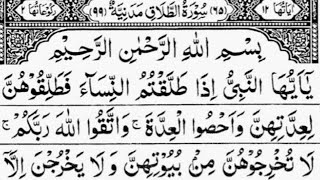 اٰيَاتُهَا ١٢ (٦٥) سُوْرَةُ الطَّلَاقِ مَدَنِيَّةٌ (٩٩) رُكُوْعَاتُهَا ٢
بِسْمِ اللّٰهِ الرَّحْمٰنِ الرَّحِيْمِ
يٰۤاَيُّهَا النَّبِيُّ اِذَا طَلَّقْتُمُ النِّسَآءَ فَطَلِّقُوْهُنَّ
لِعِدَّتِهِنَّ وَاَحْصُوا الْعِدَّةَ ۚ وَاتَّقُوا اللّٰهَ رَبَّكُمْ ۚ
لَا تُخْرِجُوْهُنَّ مِنْۢ بُيُوْتِهِنَّ وَلَا يَخْرُجْنَ اِلَّاۤ